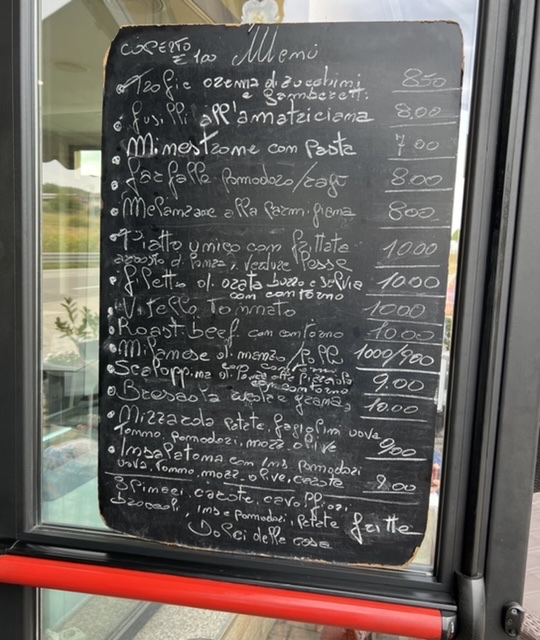 COPERTO € 1,00 Menù
Trofie crema di zucchini 8,50
e gamberetti
fusilli all'amatriciana 8,00
Minestrone con Pasta 7,00
farfalle Pomodoro/ragù 8.00
Melanzane alla Parmigiana 8,00
Piatto unico con frittate 10.00
arrosto di Ponza, verdure Pesse
filetto di orata burro e salvia 10.00
con contorno
Vitello Tonnato 10.00
Roast-beef con contorno 10.00
Milanese di manzo/Pollo 10.00/9,00
con contorno
Scaloppina di alla Pizzaiola 9.00
con contorno
Bresaola rucola e grana 10.00
Nizzarda Patate, fagiolini uova 9,00
Tonno, pomodori, mozz. olive
Insalatona con ins Pomodori
uova, tonno, mozz. olive, carote 9.00
Spinaci, carote, cavolfiori,
broccoli, ins e pomodori, Patate fritte
Dolci della casa